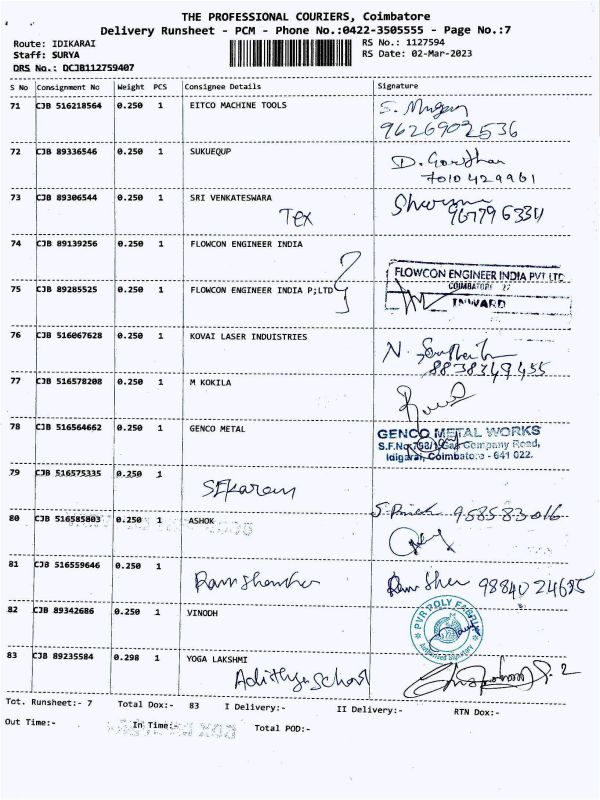 THE PROFESSIONAL COURIERS, Coimbatore
Delivery Runsheet - PCM - Phone No.:0422-3505555 - Page No.:7
Route: IDIKARAI
Staff: SURYA
DRS No.: DCJB112759407
RS No.: 1127594
RS Date: 02-Mar-2023
S No Consignment No Weight PCS Consignee Details Signature
71 CJB 516218564 0.250 1 EITCO MACHINE TOOLS
9626902536
72 CJB 89336546 0.250 1 SUKUEQUP
7010429961
73 CJB 89306544 0.250 1 SRI VENKATESWARA
Tex
74 CJB 89139256 0.250 1 FLOWCON ENGINEER INDIA
75 CJB 89285525 0.250 1 FLOWCON ENGINEER INDIA P;LTD
FLOWCON ENGINEER INDIA PVT LTD
INWARD
76 CJB 516067628 0.250 1 KOVAI LASER INDUISTRIES
77 CJB 516578208 0.250 1 M KOKILA
78 CJB 516564662 0.250 1 GENCO METAL
GENCO METAL WORKS
Company Road,
Idigarai, Coimbatore - 641 022.
79 CJB 516575335 0.250 1
80 CJB 516585803 0.250 1 ASHOK
81 CJB 516559646 0.250 1
82 CJB 89342686 0.250 1 VINODH
PVR POLY FABRIC
Authorised Signatory
83 CJB 89235584 0.298 1 YOGA LAKSHMI
Adithya School
Tot. Runsheet:- 7 Total Dox:- 83 I Delivery:- II Delivery:- RTN Dox:-
Out Time:- In Time:- Total POD:-